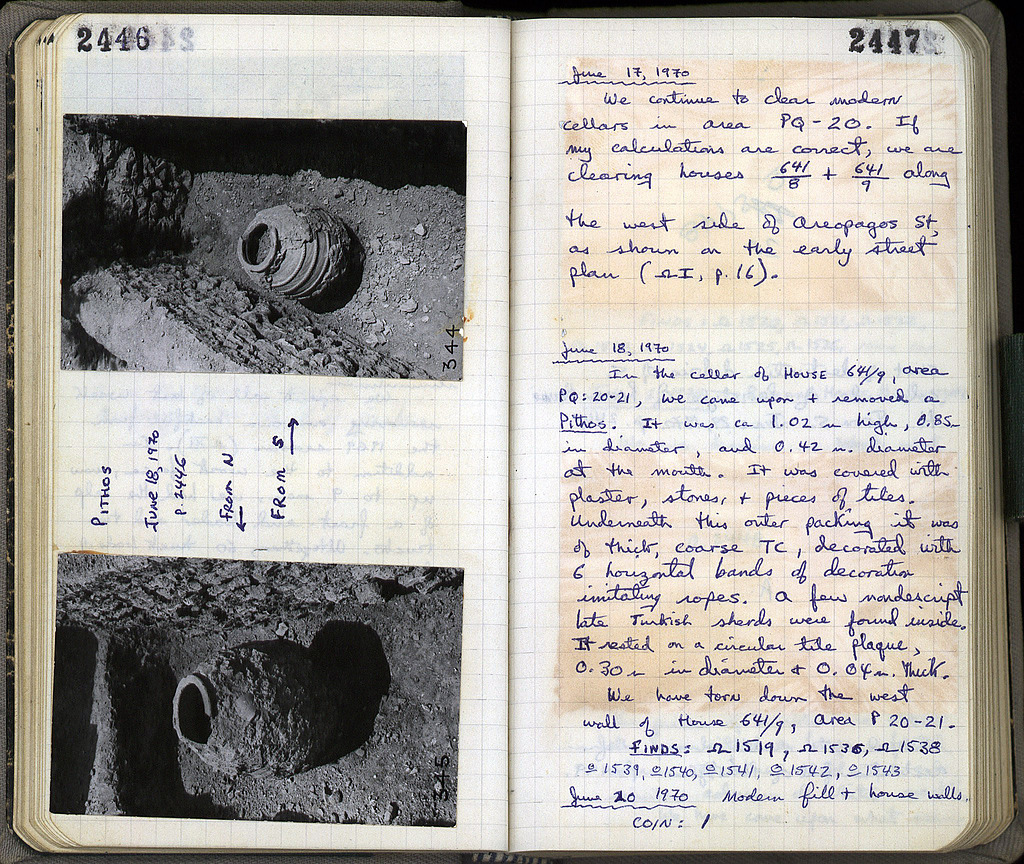 2446
344
PITHOS
JUNE 18, 1970
p. 2446
← From N
FROM S →
345
2447
June 17, 1970
We continue to clear modern
cellars in area PQ-20. If
my calculations are correct, we are
clearing houses 641/8 + 641/9 along
the west side of Areopagos St,
as shown on the early street
plan (ΩI, p. 16).
June 18, 1970
In the cellar of HOUSE 641/9, area
PQ: 20-21, we came upon + removed a
Pithos. It was ca 1.02 m high, 0.85m
in diameter, and 0.42 m. diameter
at the mouth. It was covered with
plaster, stones, + pieces of tiles.
Underneath this outer packing it was
of thick, coarse TC, decorated with
6 horizontal bands of decoration
imitating ropes. A few nondescript
late Turkish sherds were found inside.
It rested on a circular tile plaque,
0.30 m in diameter + 0.04 m. thick.
We have torn down the west
wall of House 641/9, area P 20-21.
FINDS: Ω 1519, Ω 1536, Ω 1538
Ω 1539, Ω 1540, Ω 1541, Ω 1542, Ω 1543
June 20 1970 Modern fill + house walls.
COIN: 1